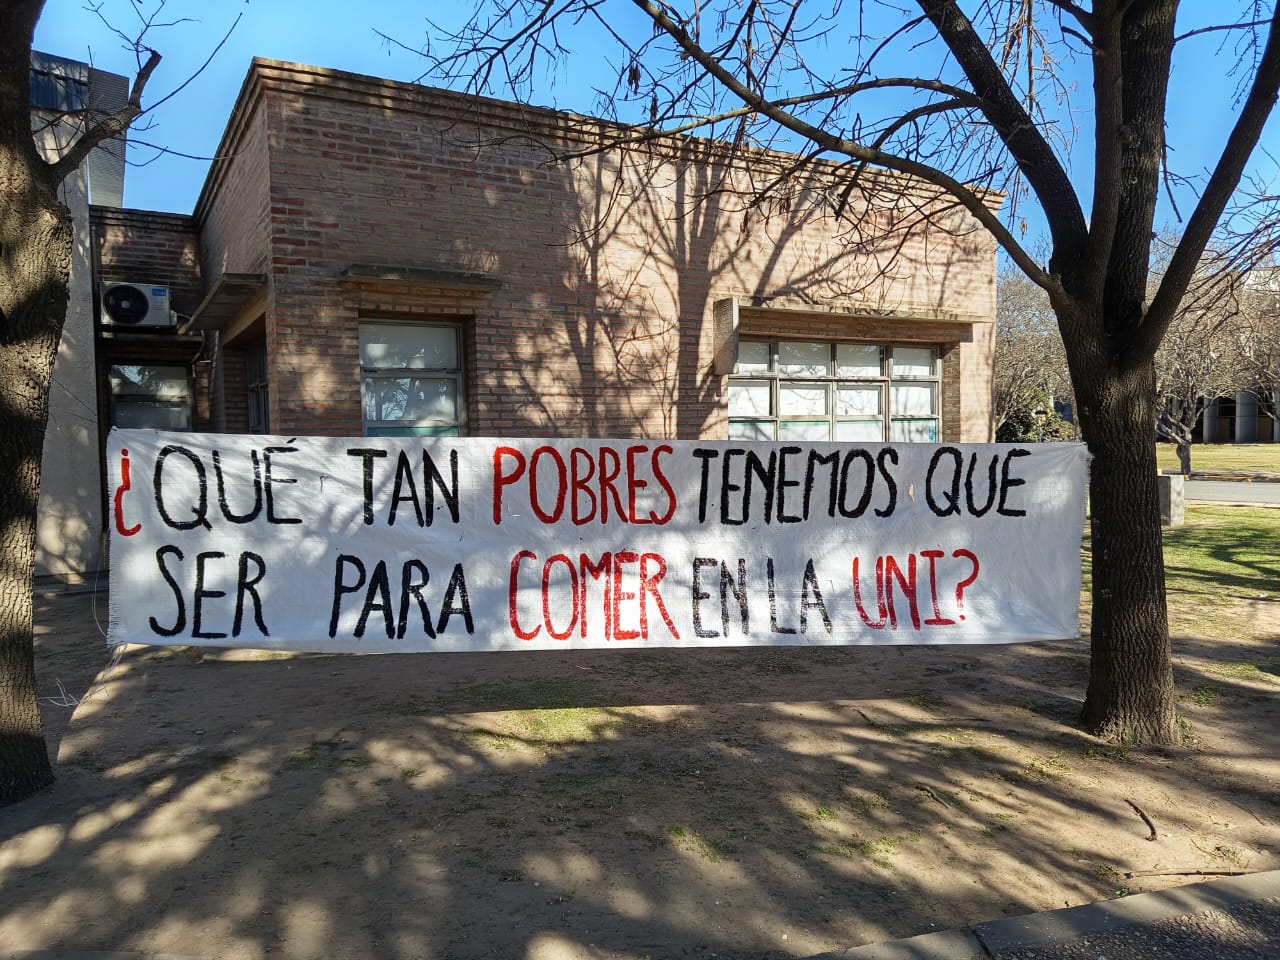 ¿QUÉ TAN POBRES TENEMOS QUE
SER PARA COMER EN LA UNI?